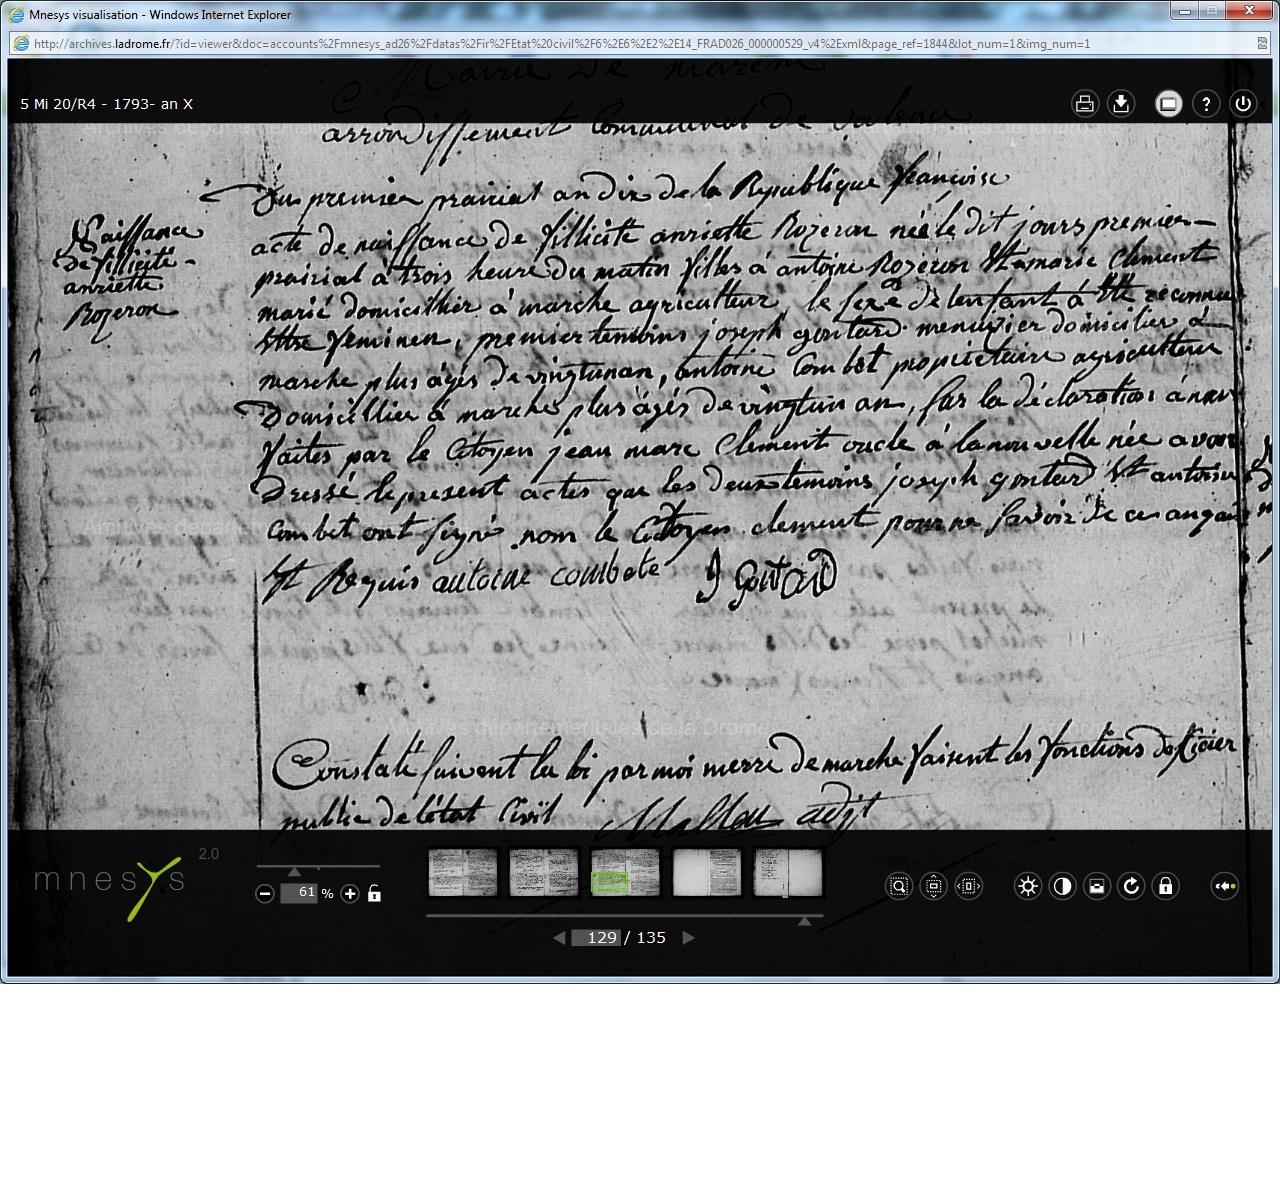 Mnesys visualisation - Windows Internet Explorer
http://archives.ladrome.fr/?id=viewer&doc=accounts%2Fmnesys_ad26%2Fdatas%2Fir%2FEtat%20civil%2F6%2E6%2E2%2E14_FRAD026_000000529_v4%2Exml&page_ref=1844&lot_num=1&img_num=1
Mairie de marche
5 Mi 20/R4 - 1793- an X
?
arrondissement Communal de valence
Du premier prairial an dix de la Republique francoise
Naissance
de fillicité
anriette
Rozeron
acte de naissance de fillicité anriette Rozeron née le dit jours premier
prairial à trois heure du matin filles à antoine Rozeron Et marie Clement
marié domicillier à marche agriculteur le sexe de lenfant à Etté reconnu
Ettre feminen, premier temoins joseph gontard menuzier domicilier à
marche plus agés de vingtunan, antoine Combet propietaire agriculteur
Domicillier à marche plus àgés de vingtun an, sur la déclaration à nous
faites par le Citoyen jean marc Clement oncle à la nouvelle née avons
Dressé le present actes que les deux temoins joseph gontard Et antoine
Combet ont signé nom le Citoyen clement pour ne savoir de ce
Et Requis antoine combete J Gontard
Constaté suivent la loi par moi merre de marche faisent les fonctions
public de l'état Civil adjt
mnesys 2.0
61 %
129 / 135